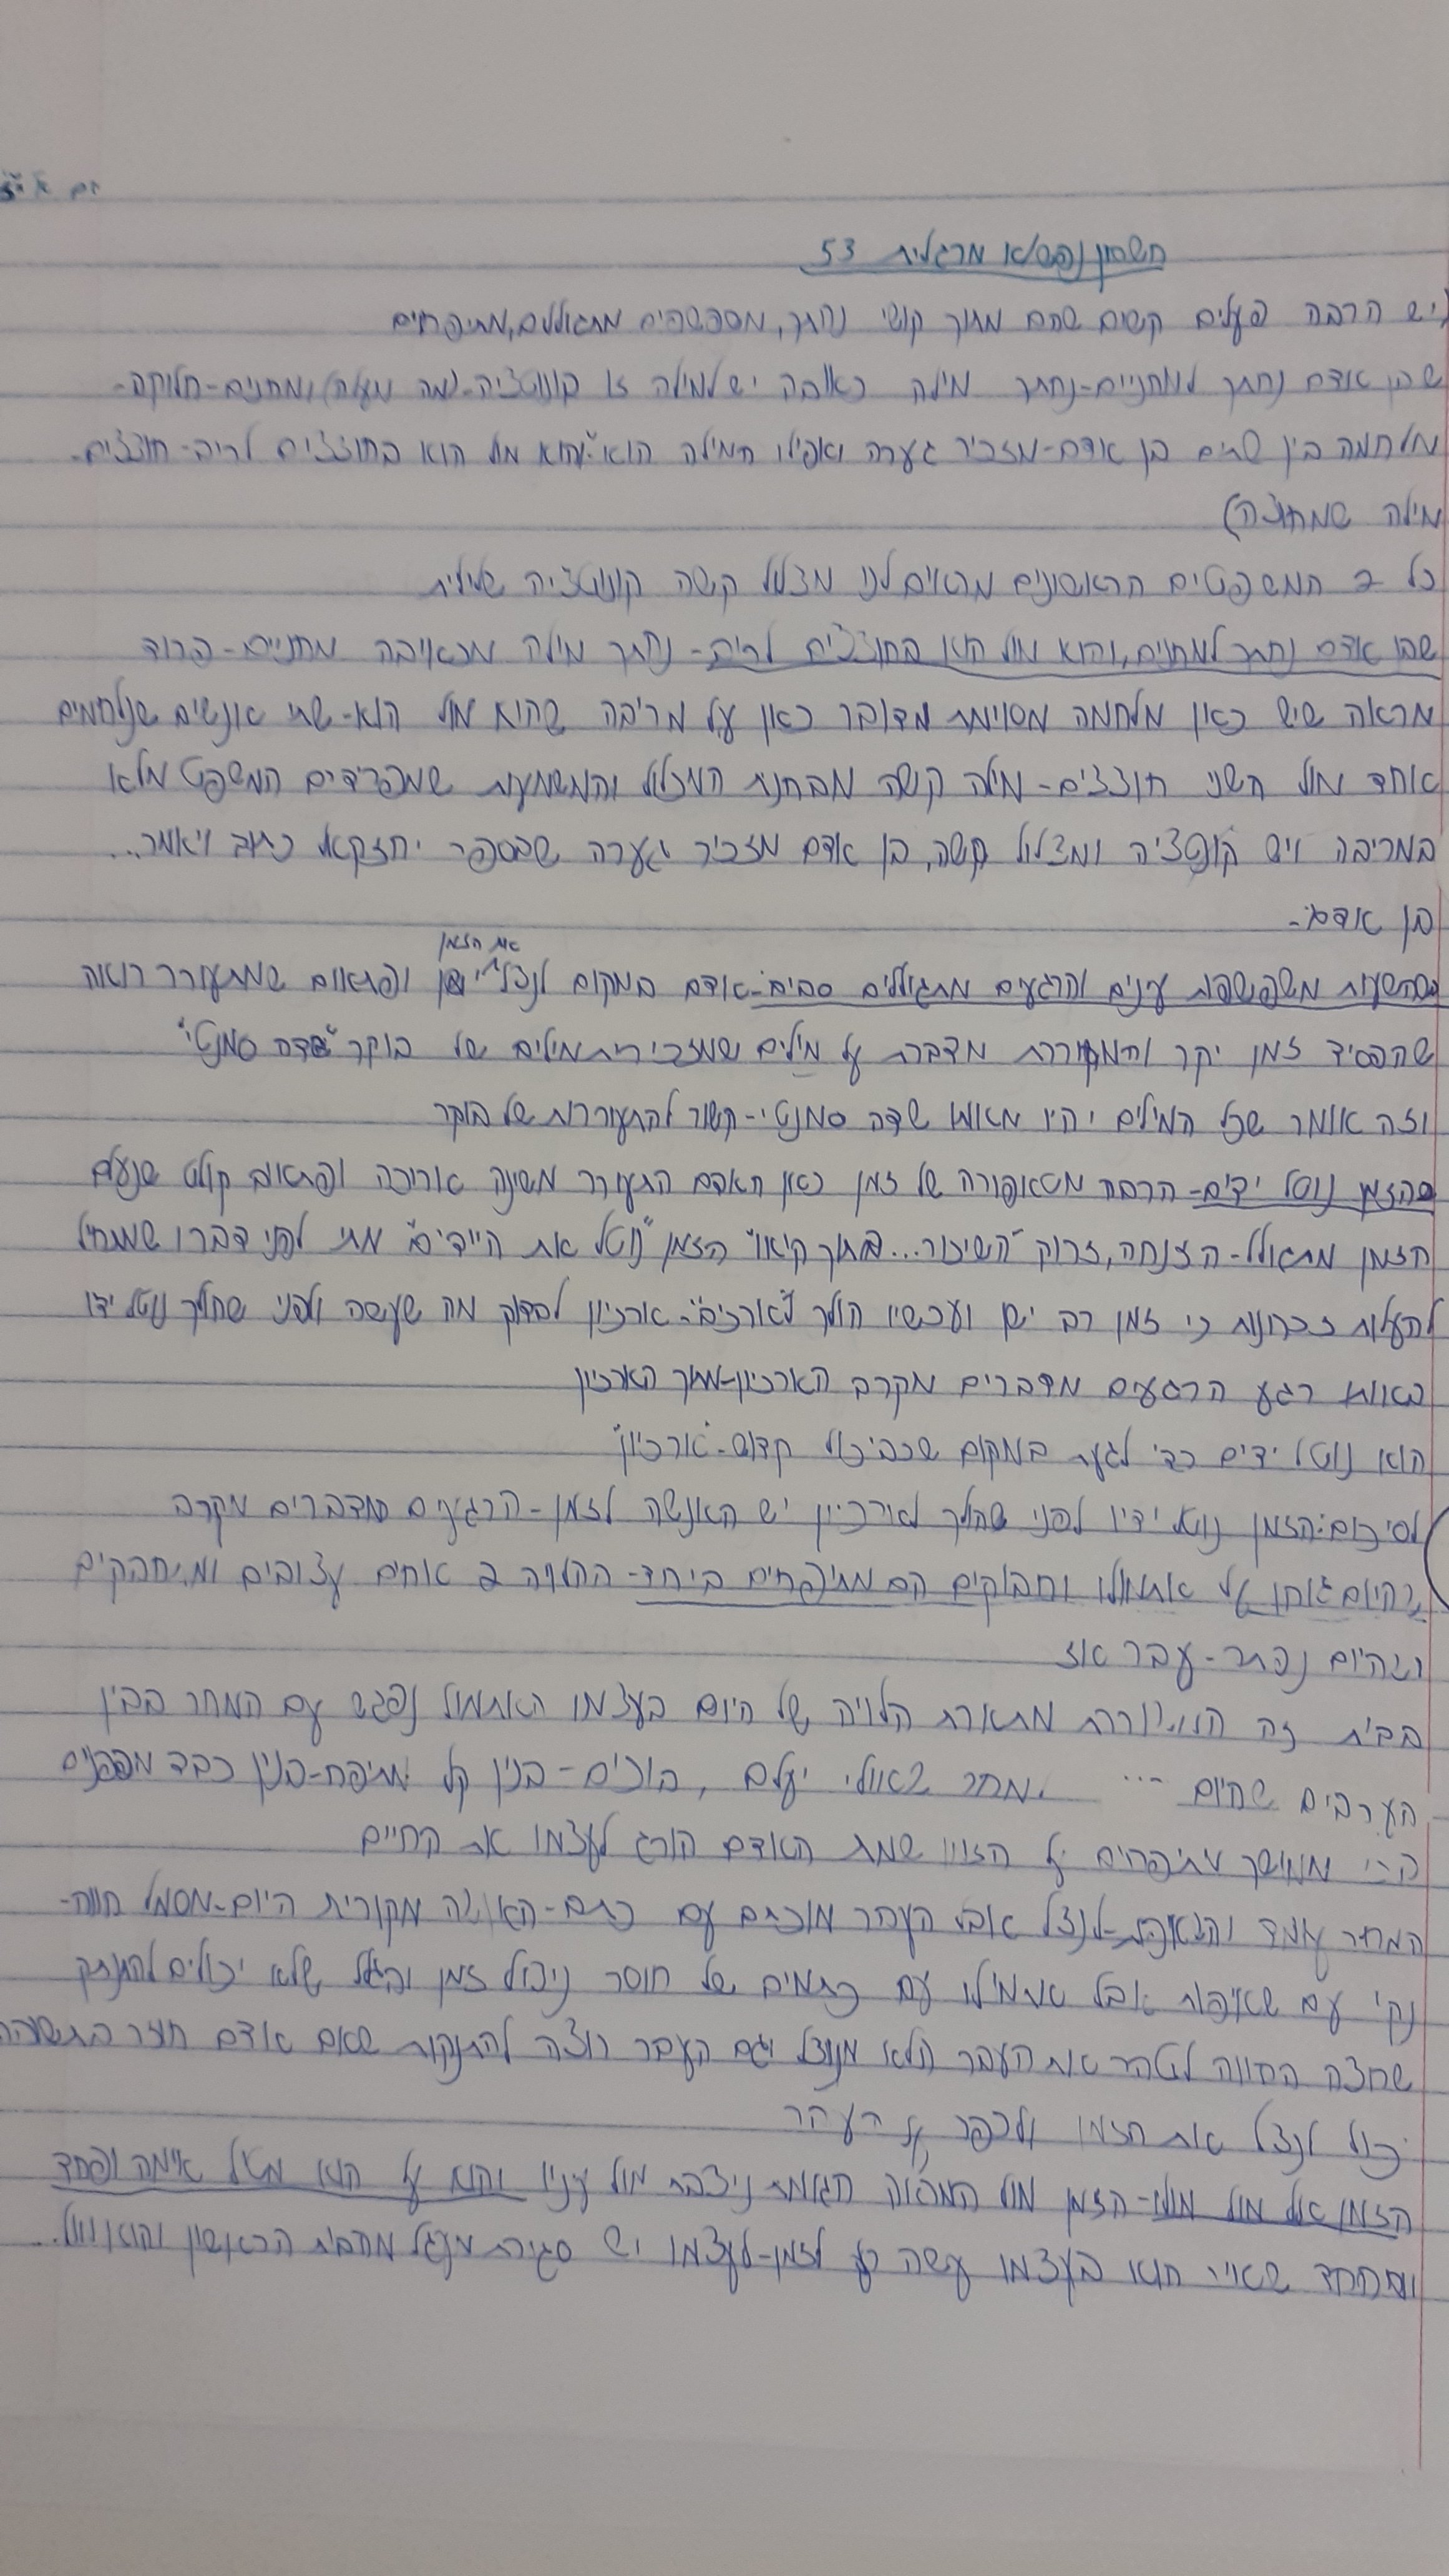 יום א' י"ב
חשבון נפש/א מרגלית 53
(יש הרבה פעלים קשים שהם מתוך קושי נחתך, מפשפשים מתגוללים, מתיפחים
שבן אדם נחתך למתניים-נחתך מילה כאובה יש למילה זו קונוטציה-(מה מעלה) ומתנים-חלוקה-
מלחמה בין שתים בן אדם-מזכיר גערה ואפילו המילה הוא "והוא מול הוא בחוצצים לריב-חוצצים-
מילה שמחוצה)
כל 2 המשפטים הראשונים מראים לנו מצלול קשה קונוטציה שלילית
שבן אדם נחתך למתנים, והוא מול הוא בחוצצים לריב- נחתך מילה מכאיבה מתניים-פרוד
מראה שיש כאן מלחמה מסוימת מדובר כאן על מריבה שהוא מול הוא-שתי אנשים שנלחמים
אחד מול השני חוצצים- מילה קשה מבחנת המצלול והמשמעות שמפרידים המשפט מלא
במריבה ויש קונטציה ומצלול קשה, בן אדם מזכיר גערה שבספר יחזקאל כתוב ויאמר...
בן אדם-
את הזמן
כשהשעות משפשפות עינים והרגעים מתגוללים סביב-אדם במקום לנצל ישן ופתאום שמתעורר רואה
שהפסיד זמן יקר והמשוררת מדברת על מילים שמזכירות מילים של בוקר "שדה סמנטי"
וזה אומר שכל המילים יהיו מאותו שדה סמנטי-קשור להתעוררות של בוקר
כהזמן נוטל ידים- הרבה מטאפורה של זמן כאן האדם התעורר משינה ארוכה ופתאום קולט שנעלם
הזמן מתגולל-הזנחה, זרוק "השיכור... בתוך קיאו" הזמן "נוטל את הידיים" מתי לפני דברו שמתחיל
להעלות זכרונות כי זמן רב ישן ועכשיו הולך לארכיב"-ארכיון לבדוק מה שעשה ולפני שהולך נוטל ידיו
באותו רגע הרגעים מדברים מקרב הארכיון-מתוך הארכיון
הוא נוטל ידים כדי לגעת במקום שכביכול קדוש-"ארכיון"
לסיכום: הזמן נוטל ידיו לפני שהולך לארכיון יש האנשה לזמן-הרגעים מדברים מקרב
והיום גוחן על אתמולו וחבוקים הם מתיפחים ביחד- ההלויה 2 אחים עצובים ומתחבקים
והיום נפטר-עבר אז
בבית זה המשוררת מתארת הלויה של היום בעצמו האתמול נפגש עם המחר בבין
הערבים שהיום ... מחר שאולי יעלם, בוכים-בנין קל מתיפח-בנין כבד מבפנים
מתיפחים על הזמן שמת האדם הורג לעצמו את החיים
המחר עומד לנצל אבל העבר מוכתם עם כתם- מקורית היום-מסמל הווה-
נקי עם שאיפות אבל אתמולו עם כתמים של חוסר ניצול זמן והגלל שלא יכולים להתנתק
שרוצה ההווה לטהר את העבר הלא מנוצל וגם העבר רוצה להתנקות שאם אדם חוזר בתשובה
יכול לנצל את הזמן ולכפר על העבר
הזמן אל מול מולו-הזמן מול המראה הגומת ניצבת מול עיניו והוא על הוא מטיל אימה ופחד
ומפחד הוא בעצמו עשה רע לזמן-לעצמו יש סגירת מעגל מהבית הראשון והוא מול...